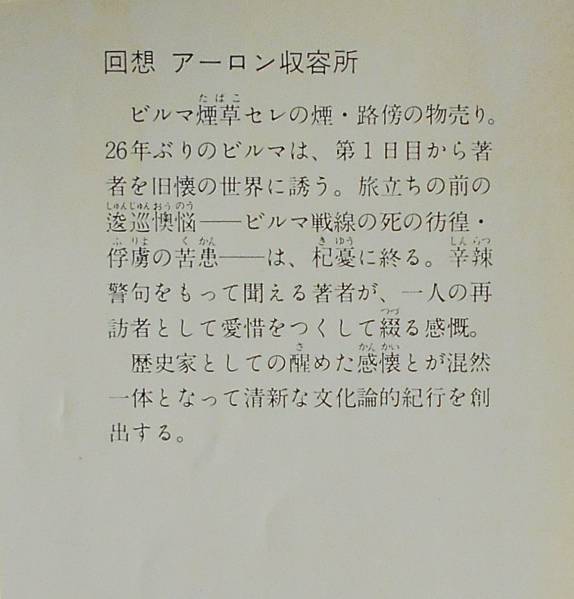 回想 アーロン収容所
ビルマ煙草セレの煙・路傍の物売り。
26年ぶりのビルマは、第1日目から著
者を旧懐の世界に誘う。旅立ちの前の
逡巡懊悩――ビルマ戦線の死の彷徨・
俘虜の苦患――は、杞憂に終る。辛辣
警句をもって聞える著者が、一人の再
訪者として愛惜をつくして綴る感慨。
歴史家としての醒めた感懐とが混然
一体となって清新な文化論的紀行を創
出する。